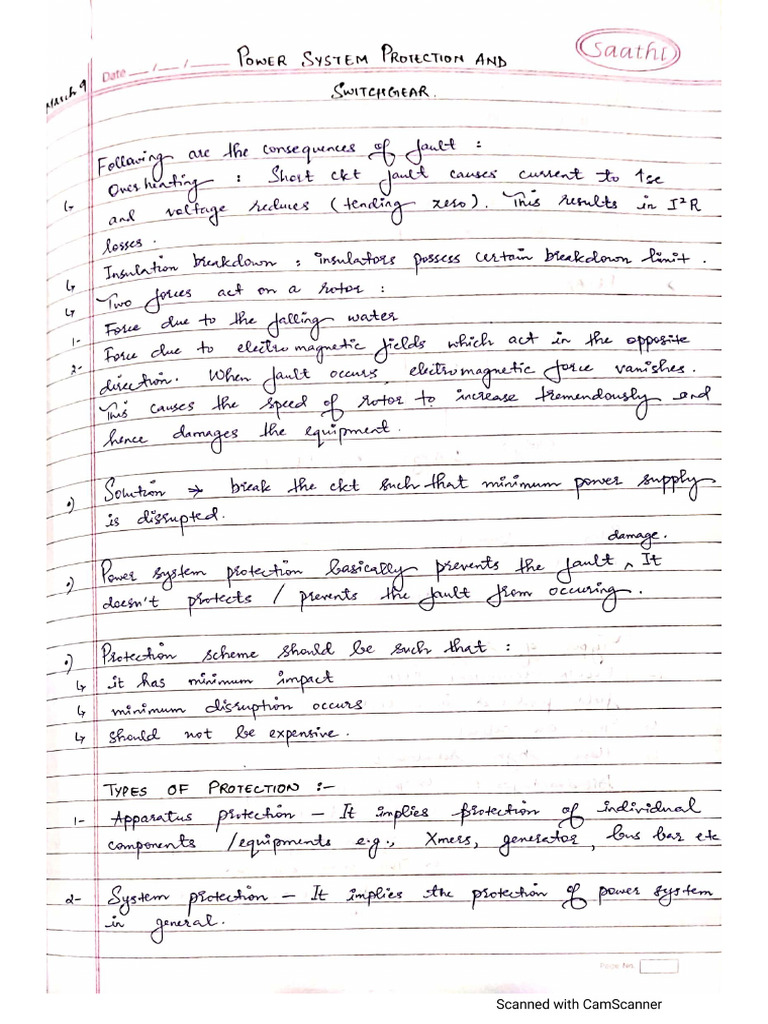 Saathi
Date __/__/____
POWER SYSTEM PROTECTION AND
SWITCHGEAR.
March 9
Following are the consequences of fault :
↳ Overheating : Short ckt fault causes current to ↑se
and voltage reduces (tending zero). This results in I²R
losses.
↳ Insulation breakdown : insulators possess certain breakdown limit.
↳ Two forces act on a rotor :
1- Force due to the falling water
2- Force due to electromagnetic fields which act in the opposite
direction. When fault occurs, electromagnetic force vanishes.
This causes the speed of rotor to increase tremendously and
hence damages the equipment.
•) Solution → break the ckt such that minimum power supply
is disrupted.
damage.
•) Power system protection basically prevents the fault ^ It
doesn't protects / prevents the fault from occuring.
•) Protection scheme should be such that :
↳ it has minimum impact
↳ minimum disruption occurs
↳ should not be expensive.
TYPES OF PROTECTION :-
1- Apparatus protection – It implies protection of individual
components /equipments e.g., Xmers, generator, bus bar etc
2- System protection – It implies the protection of power system
in general.
Page No.
Scanned with CamScanner